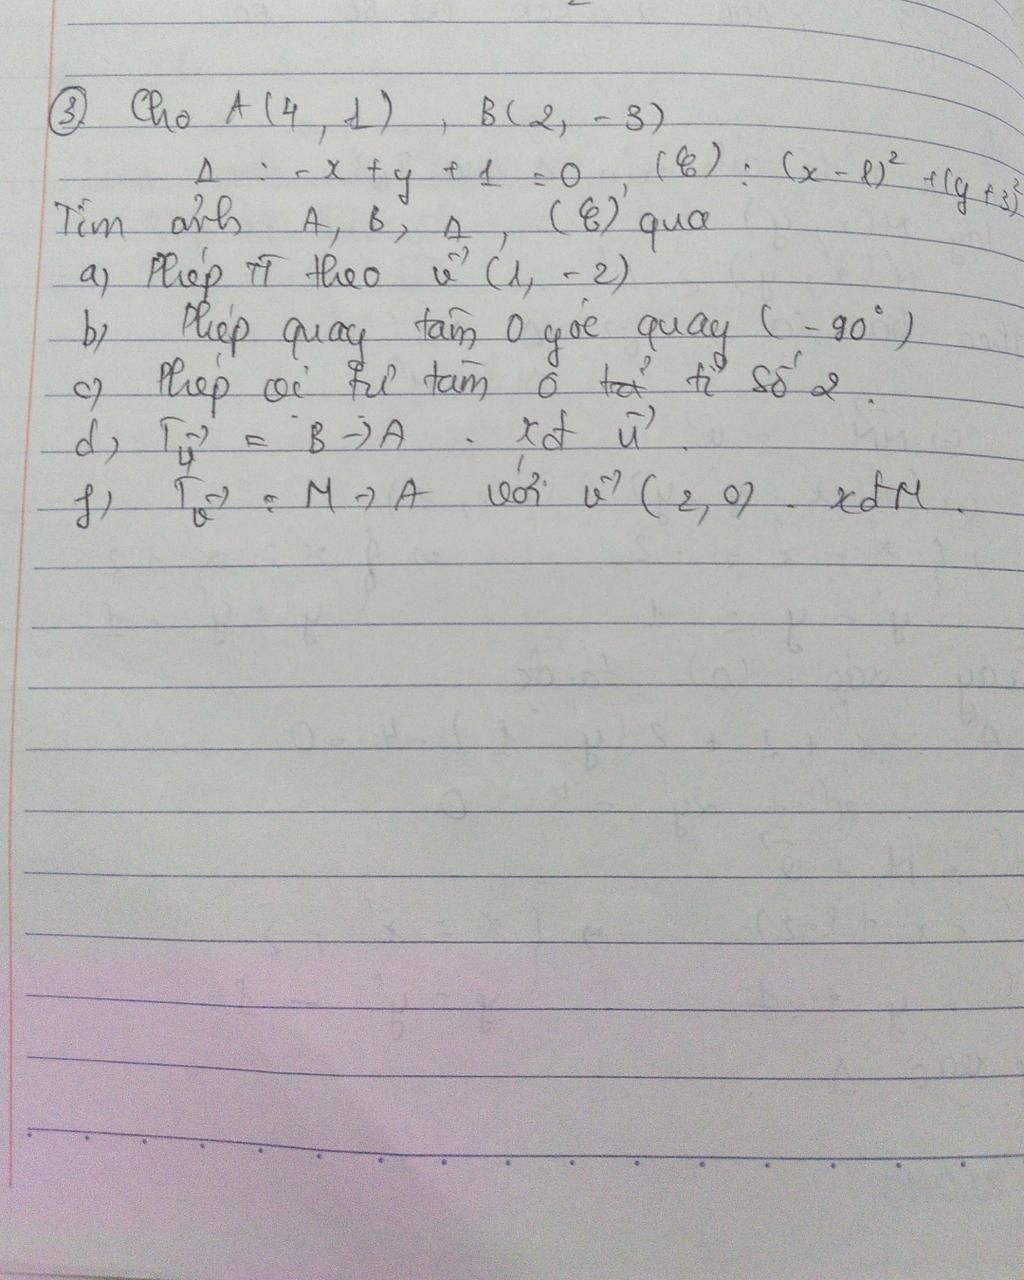 ③ Cho A(4, 1), B(2, -3)
Δ : -x + y + 1 = 0, (C) : (x - 2)² + (y + 3)²
Tìm ảnh A, B, Δ, (C) qua
a) Phép TT theo v→ (1, -2)
b) Phép quay tâm O góc quay (-90°)
c) Phép vi tự tâm O tỉ số 2.
d) Tu→ = B → A . xđ u→.
f) Tv→ : M → A với v→ (2, 0) . xđ M.